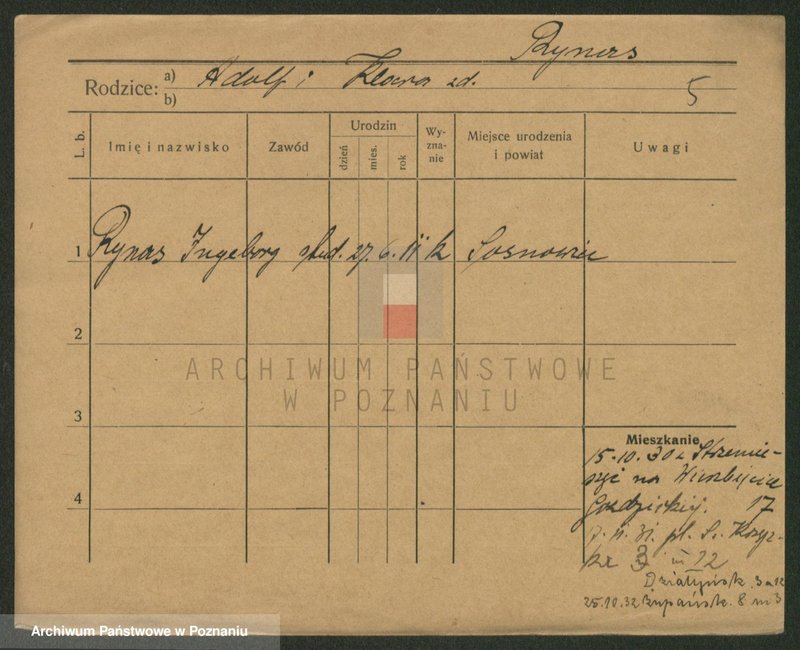 Rynas
Rodzice: a) Adolf i Klara zd.
b) 5
L. b. Imię i nazwisko Zawód Urodzin dzień mies. rok Wy-zna-nie Miejsce urodzenia i powiat Uwagi
1 Rynas Ingeborg stud. 27. 6. 11 k Sosnowiec
2
ARCHIWUM PAŃSTWOWE
W POZNANIU
3
Mieszkanie
15-10.30 z Strzemie-
szyc na
17
4
7. 11. 31. pl. Św. Krzys-
ki 3 m 12
Działyńsk. 3 m 12
25.10.32 Żupańsk. 8 m 3
Archiwum Państwowe w Poznaniu